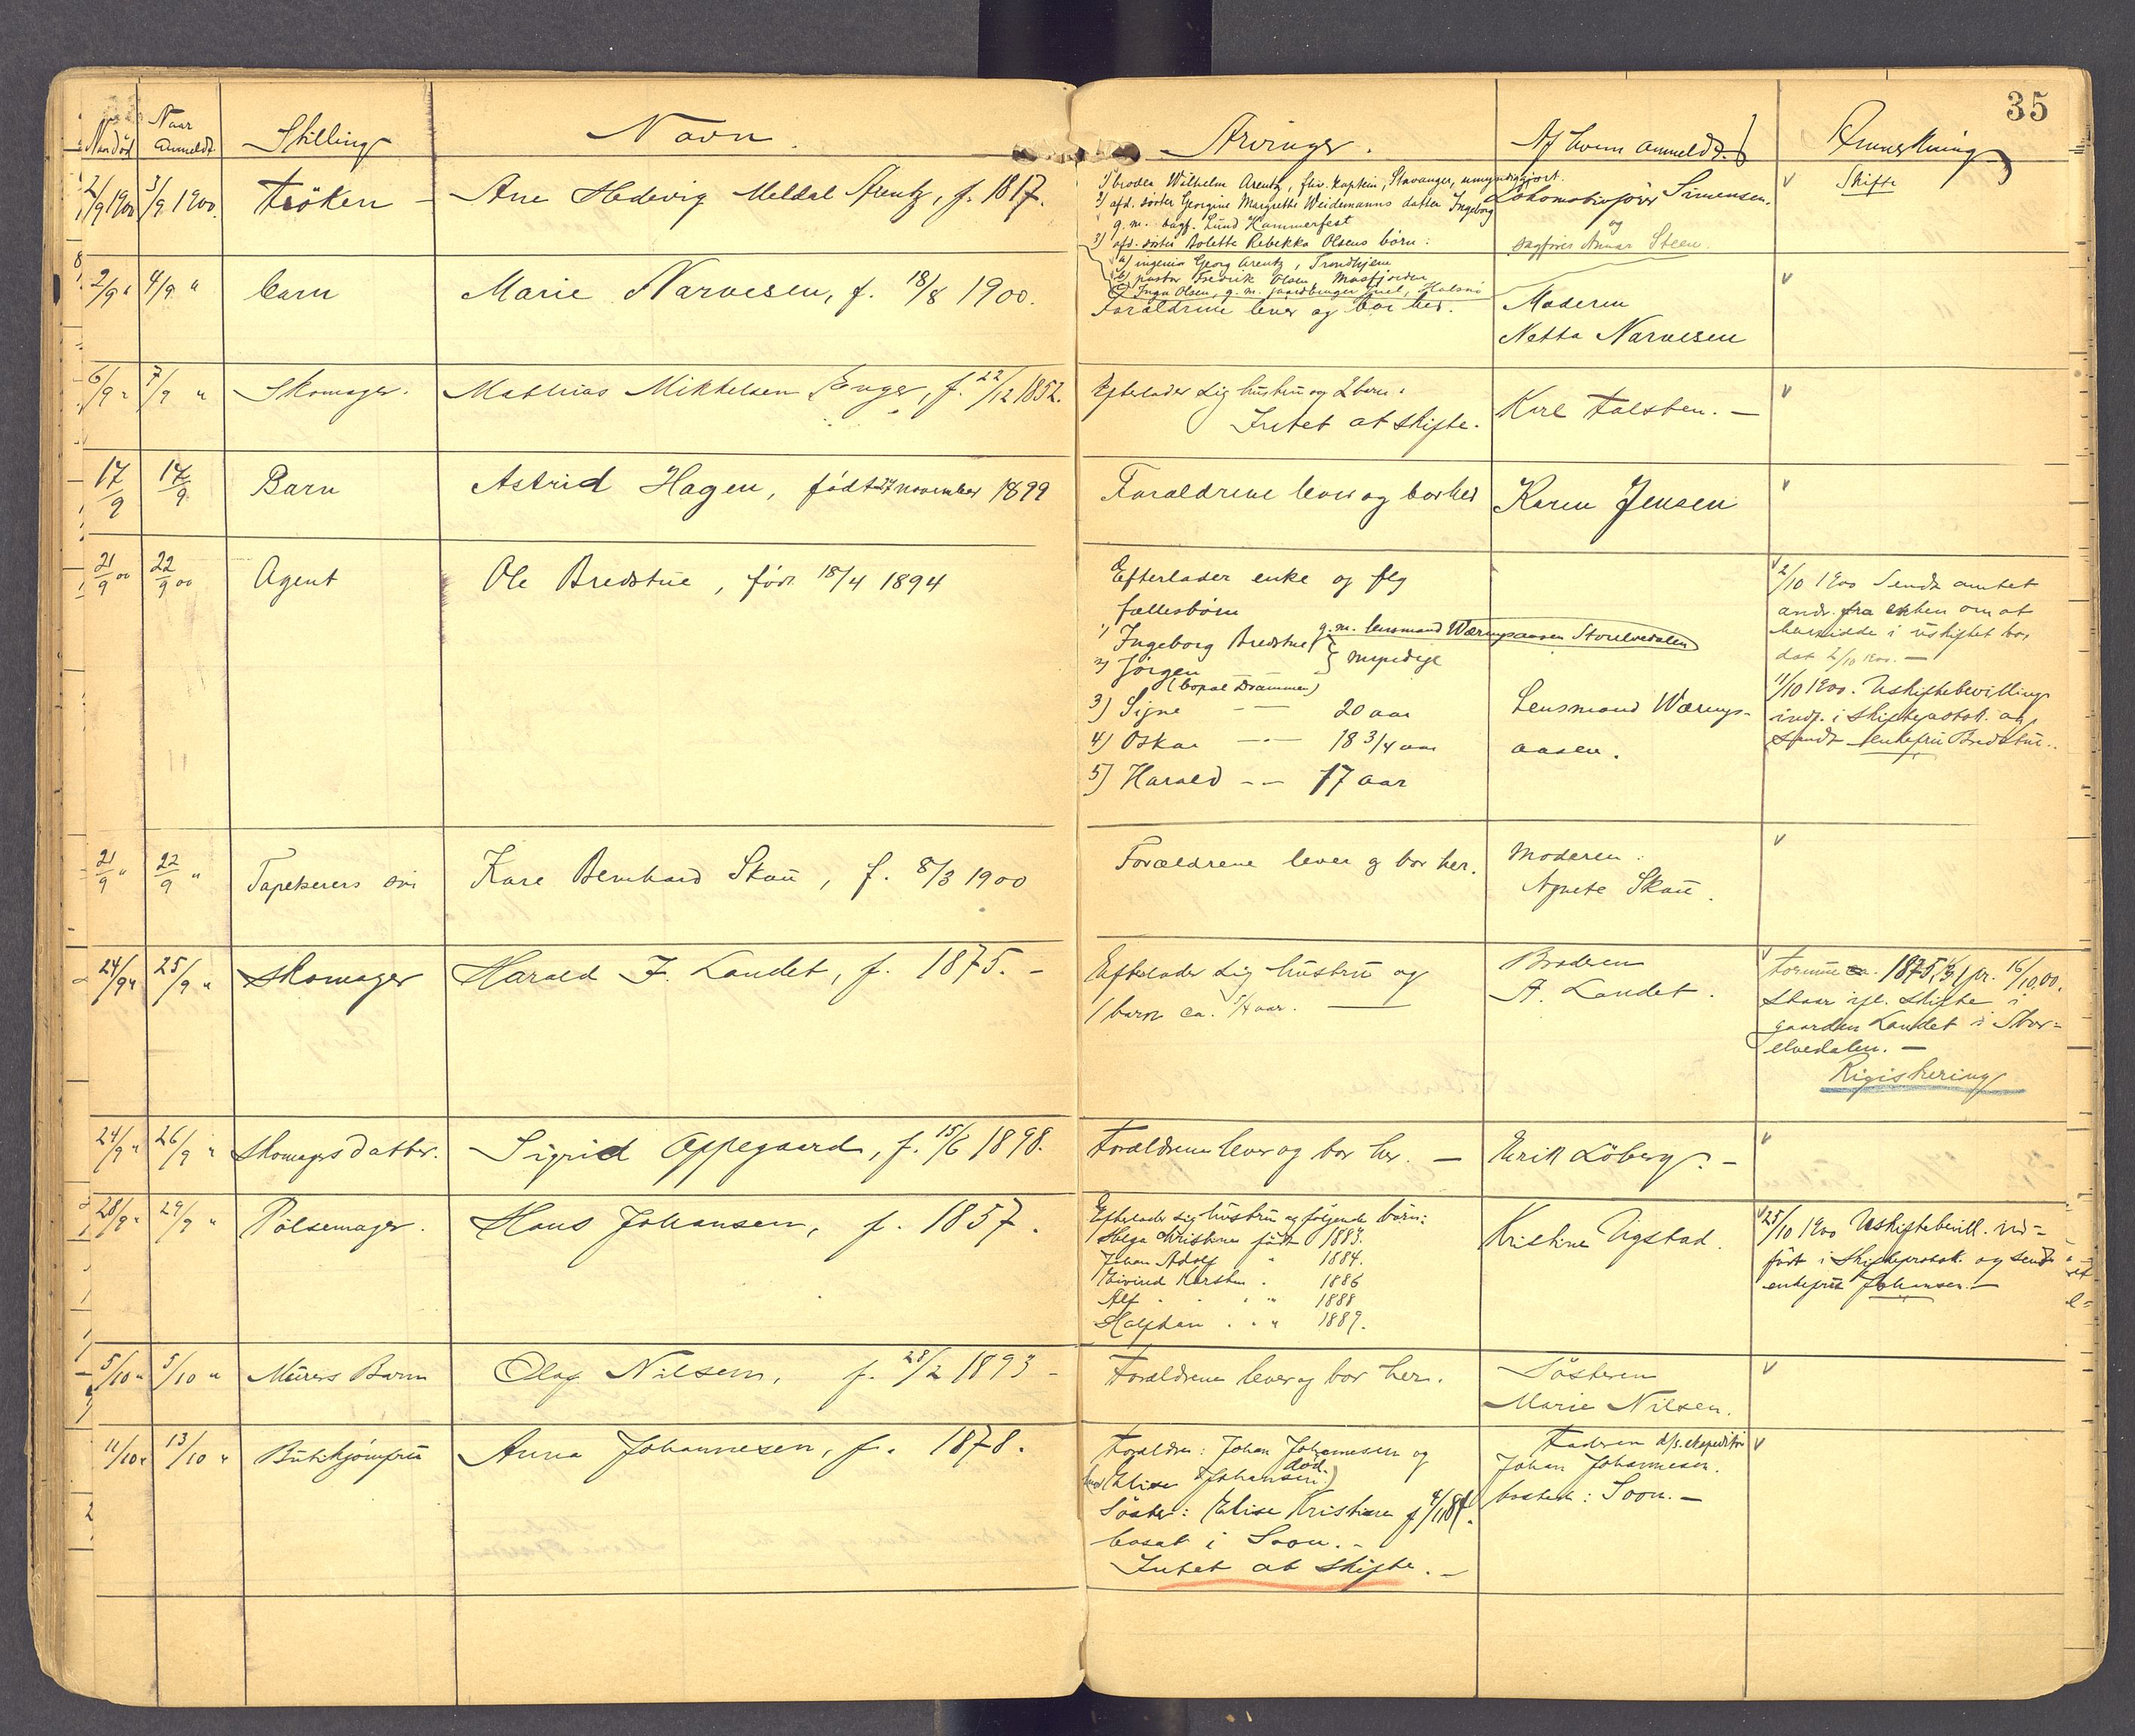 35
Naar död
Naar anmeldt
Stilling
Navn.
Arvinger.
Af hvem anmeldt.
Anmerkning
2/9 1900
3/9 1900.
Fröken
Ane Hedevig Meldal Arentz, f. 1817.
1) broder Wilhelm Arentz, fhv. kaptein, Stavanger, umyndiggjort.
2) afd. söster Georgine Margrethe Weidemanns datter Ingeborg
g. m. sagf. Lund Hammerfest
3) afd. söster Bolette Rebekka Olsens börn:
a) ingeniör Georg Arentz, Trondhjem
b) pastor Fredrik Olsen Masfjorden
c) Inga Olsen, g. m. gaardbruger Juel, Halsnö
Lokomotivförer Simensen.
og
sagförer Annar Steen.
v Skifte
2/9 "
4/9 "
barn
Marie Narvesen, f. 18/8 1900.
Forældrene lever og bor her.
Moderen
Netta Narvesen
v
6/9 "
7/9 "
Skomager.
Mathias Mikkelsen Enger, f. 22/12 1852.
Efterlader sig hustru og 2 barn.
Intet at skifte.
Karl Falsten. —
v
17/9
17/9
Barn
Astrid Hagen, födt 27 november 1899
Forældrene lever og bor her
Karen Jensen
v
21/9 00
22/9 00
Agent
Ole Bredstue, född 18/4 1894
Efterlader enke og flg
fællesbörn
1) Ingeborg Bredstue g. m. lensmand Wæringsaasen Storelvedalen
2) Jörgen } myndige
(bopæl Drammen)
3) Signe — 20 aar
4) Oskar — 18 3/4 aar
5) Harald — 17 aar
Lensmand Wærings-
aasen.
v 2/10 1900 Sendt amtet
andr. fra enken om at
hensidde i uskiftet bo,
dat 2/10 1900. —
11/10 1900. Uskiftebevilling
indf. i skifteprotok. og
sendt enkefru Bredstue.
21/9 "
22/9 "
Tapetserers sön
Kare Bernhard Skau, f. 8/3 1900
Forældrene lever og bor her.
Moderen.
Agnete Skau.
v
24/9 "
25/9 "
Skomager
Harald J. Landet, f. 1875. -
Efterlader sig hustru og
1 barn ca. 5/4 aar. —
Broderen
A. Landet.
v Formue ca. 1875, pr. 16/10.00.
gaarden Landet i Stor-
elvedalen. —
Rigistrering
24/9 "
26/9 "
Skomagers datter.
Sigrid Oppegaard, f. 15/6 1898.
Forældrene lever og bor her. —
Erik Löberg. -
v
28/9 "
29/9 "
Pölsemager.
Hans Johansen, f. 1857.
Efterlader sig hustru og fölgende börn:
Helga Christine födt 1883.
Johan Adolf " 1884.
Eivind Karsten " 1886
Alf " 1888
Halfdan " 1889.
Kristine Vigstad.
v 25/10 1900 Uskiftebevill. ind-
fört i skifteprotok. og sendt
enkefru Johansen. —
5/10 "
5/10 "
Murers Barn
Olaf Nilsen, f. 28/2 1893 -
Forældrene lever og bor her.
Søsteren
Marie Nilsen.
v
11/10 "
13/10 "
Butikjomfru
Anna Johannesen, f. 1878.
Forældre: Johan Johannesen og
Elise Johansen död.)
Söster: Elise Kristiane f 4/1 87.
bosat i Soon. -
Intet at skifte. -
Faderen d/s. ekspeditör
Johan Johannesen.
bosted: Soon. —
v